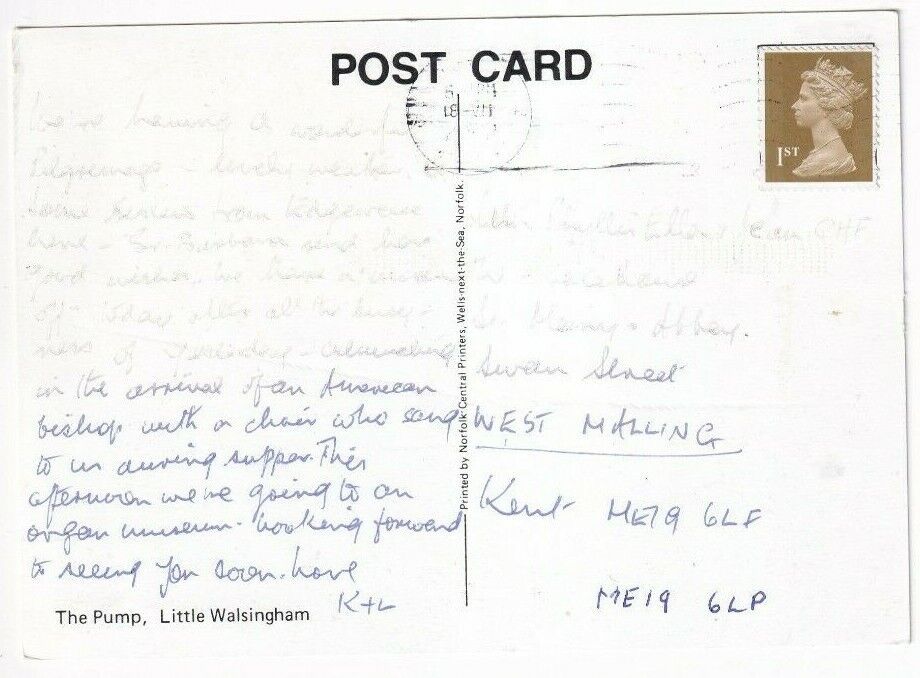 POST CARD
1ST
We're having a wonderful
Pilgrimage - lovely weather.
Some Sisters from Edgeware
here - Sr. Barbara send her
good wishes. We have a
off today after all the busy-
ness of yesterday - culminating
in the arrival of an American
bishop with a choir who sang
to us during supper. This
afternoon we're going to an
organ museum. Looking forward
to seeing you soon. Love
K+L
The Pump, Little Walsingham
Printed by Norfolk Central Printers, Wells-next-the-Sea, Norfolk.
St. Mary's Abbey.
Swan Street
WEST MALLING
Kent ME19 6LF
ME19 6LP